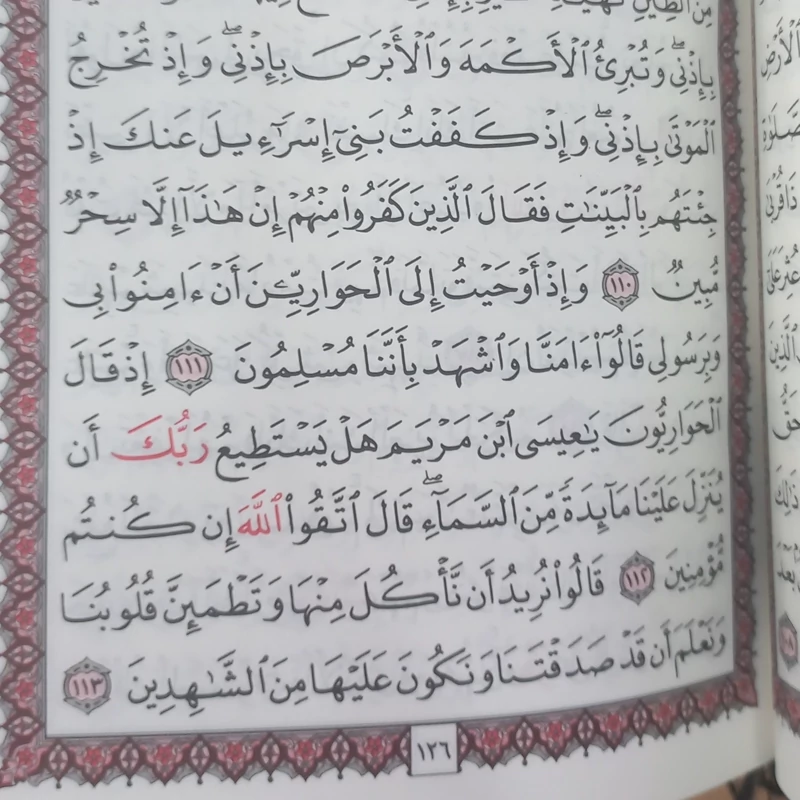 مِنَ ٱلطِّينِ
بِإِذۡنِيۖ وَتُبۡرِئُ ٱلۡأَكۡمَهَ وَٱلۡأَبۡرَصَ بِإِذۡنِيۖ وَإِذۡ تُخۡرِجُ
ٱلۡمَوۡتَىٰ بِإِذۡنِيۖ وَإِذۡ كَفَفۡتُ بَنِيٓ إِسۡرَٰٓءِيلَ عَنكَ إِذۡ
جِئۡتَهُم بِٱلۡبَيِّنَٰتِ فَقَالَ ٱلَّذِينَ كَفَرُواْ مِنۡهُمۡ إِنۡ هَٰذَآ إِلَّا سِحۡرٞ
مُّبِينٞ ١١٠ وَإِذۡ أَوۡحَيۡتُ إِلَى ٱلۡحَوَارِيِّـۧنَ أَنۡ ءَامِنُواْ بِي
وَبِرَسُولِي قَالُوٓاْ ءَامَنَّا وَٱشۡهَدۡ بِأَنَّنَا مُسۡلِمُونَ ١١١ إِذۡ قَالَ
ٱلۡحَوَارِيُّونَ يَٰعِيسَى ٱبۡنَ مَرۡيَمَ هَلۡ يَسۡتَطِيعُ رَبُّكَ أَن
يُنَزِّلَ عَلَيۡنَا مَآئِدَةٗ مِّنَ ٱلسَّمَآءِۖ قَالَ ٱتَّقُواْ ٱللَّهَ إِن كُنتُم
مُّؤۡمِنِينَ ١١٢ قَالُواْ نُرِيدُ أَن نَّأۡكُلَ مِنۡهَا وَتَطۡمَئِنَّ قُلُوبُنَا
وَنَعۡلَمَ أَن قَدۡ صَدَقۡتَنَا وَنَكُونَ عَلَيۡهَا مِنَ ٱلشَّٰهِدِينَ ١١٣
١٢٦